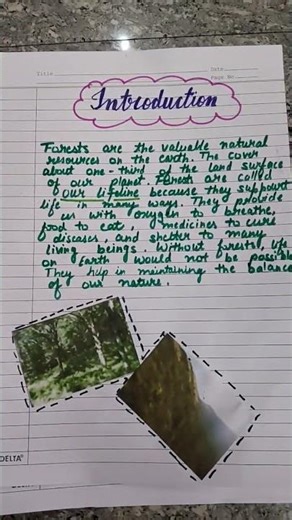 Title
Date
Page No
Introduction
Forests are the valuable natural
resources on the earth. The cover
about one-third of the land surface
of our planet. Forests are called
"Our lifeline because they support
life many ways. They provide
us with oxygen to breathe,
food to eat, medicines to cure
diseases, and shelter to many
living beings. Without forests, life
on earth would not be possible
They help in maintaining the balance
of our nature.
DELTA®